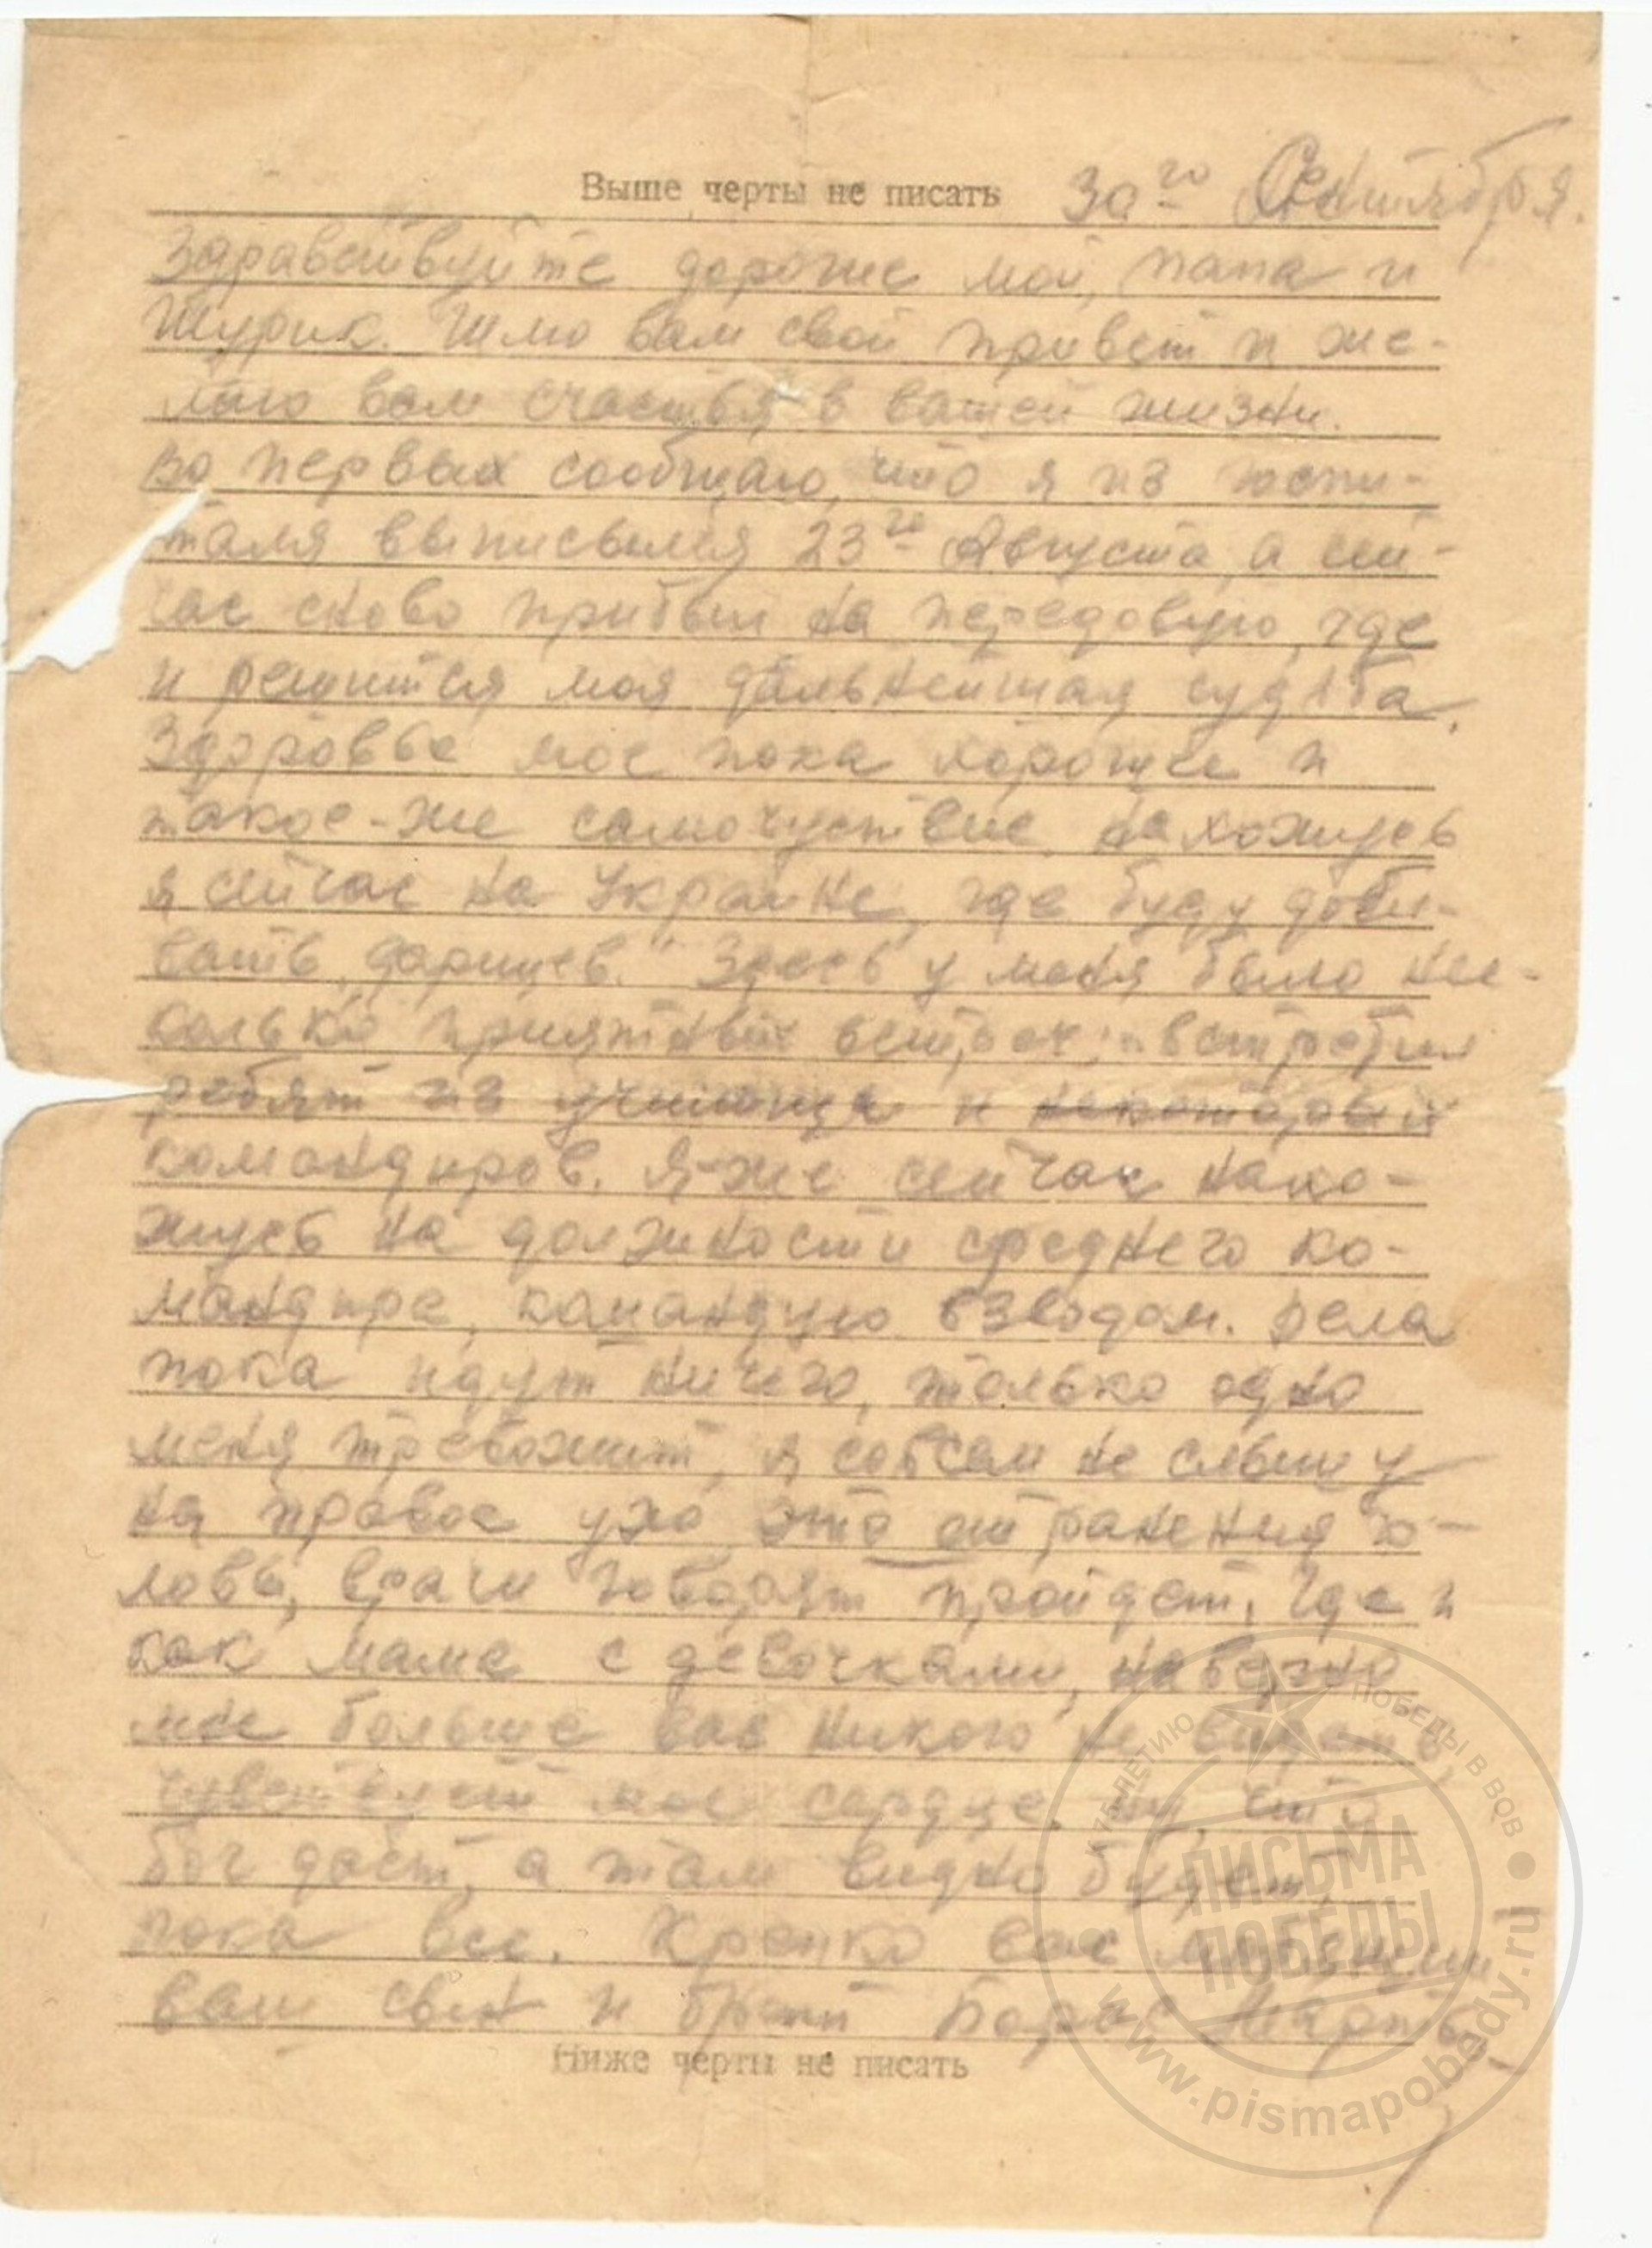 Выше черты не писать 30го Сентября.
Здравствуйте дорогие мои, папа и
Шурик. Шлю вам свой привет и же-
лаю вам счастья в вашей жизни.
во первых сообщаю, что я из госпи-
таля выписылся 23го Августа, а сей-
час снова прибыл на передовую, где
и решится моя дальнейшая судьба.
Здоровье мое пока хорошее и
такое-же самочуствие. Нахожусь
я сейчас на Украине, где буду доби-
вать „фрицев." Здесь у меня было нес-
колько приятных встреч: встретил
ребят из училища и некоторых
командиров. Я-же сейчас нахо-
жусь на должности среднего ко-
мандира, командую взводом. Дела
пока идут ничего, только одно
меня тревожит, я совсем не слышу
на правое ухо это от ранения го-
ловы, врачи говорят пройдет. Где и
как мама с девочками, наверно
мне больше вас никого не видеть,
чувствует мое сердце. Ну, что
бог даст, а там видно будет.
пока все. Крепко вас любящий
ваш сын и брат Борис
Ниже черты не писать
К 75-ЛЕТИЮ ПОБЕДЫ В ВОВ
ПИСЬМА
ПОБЕДЫ
www.pismapobedy.ru